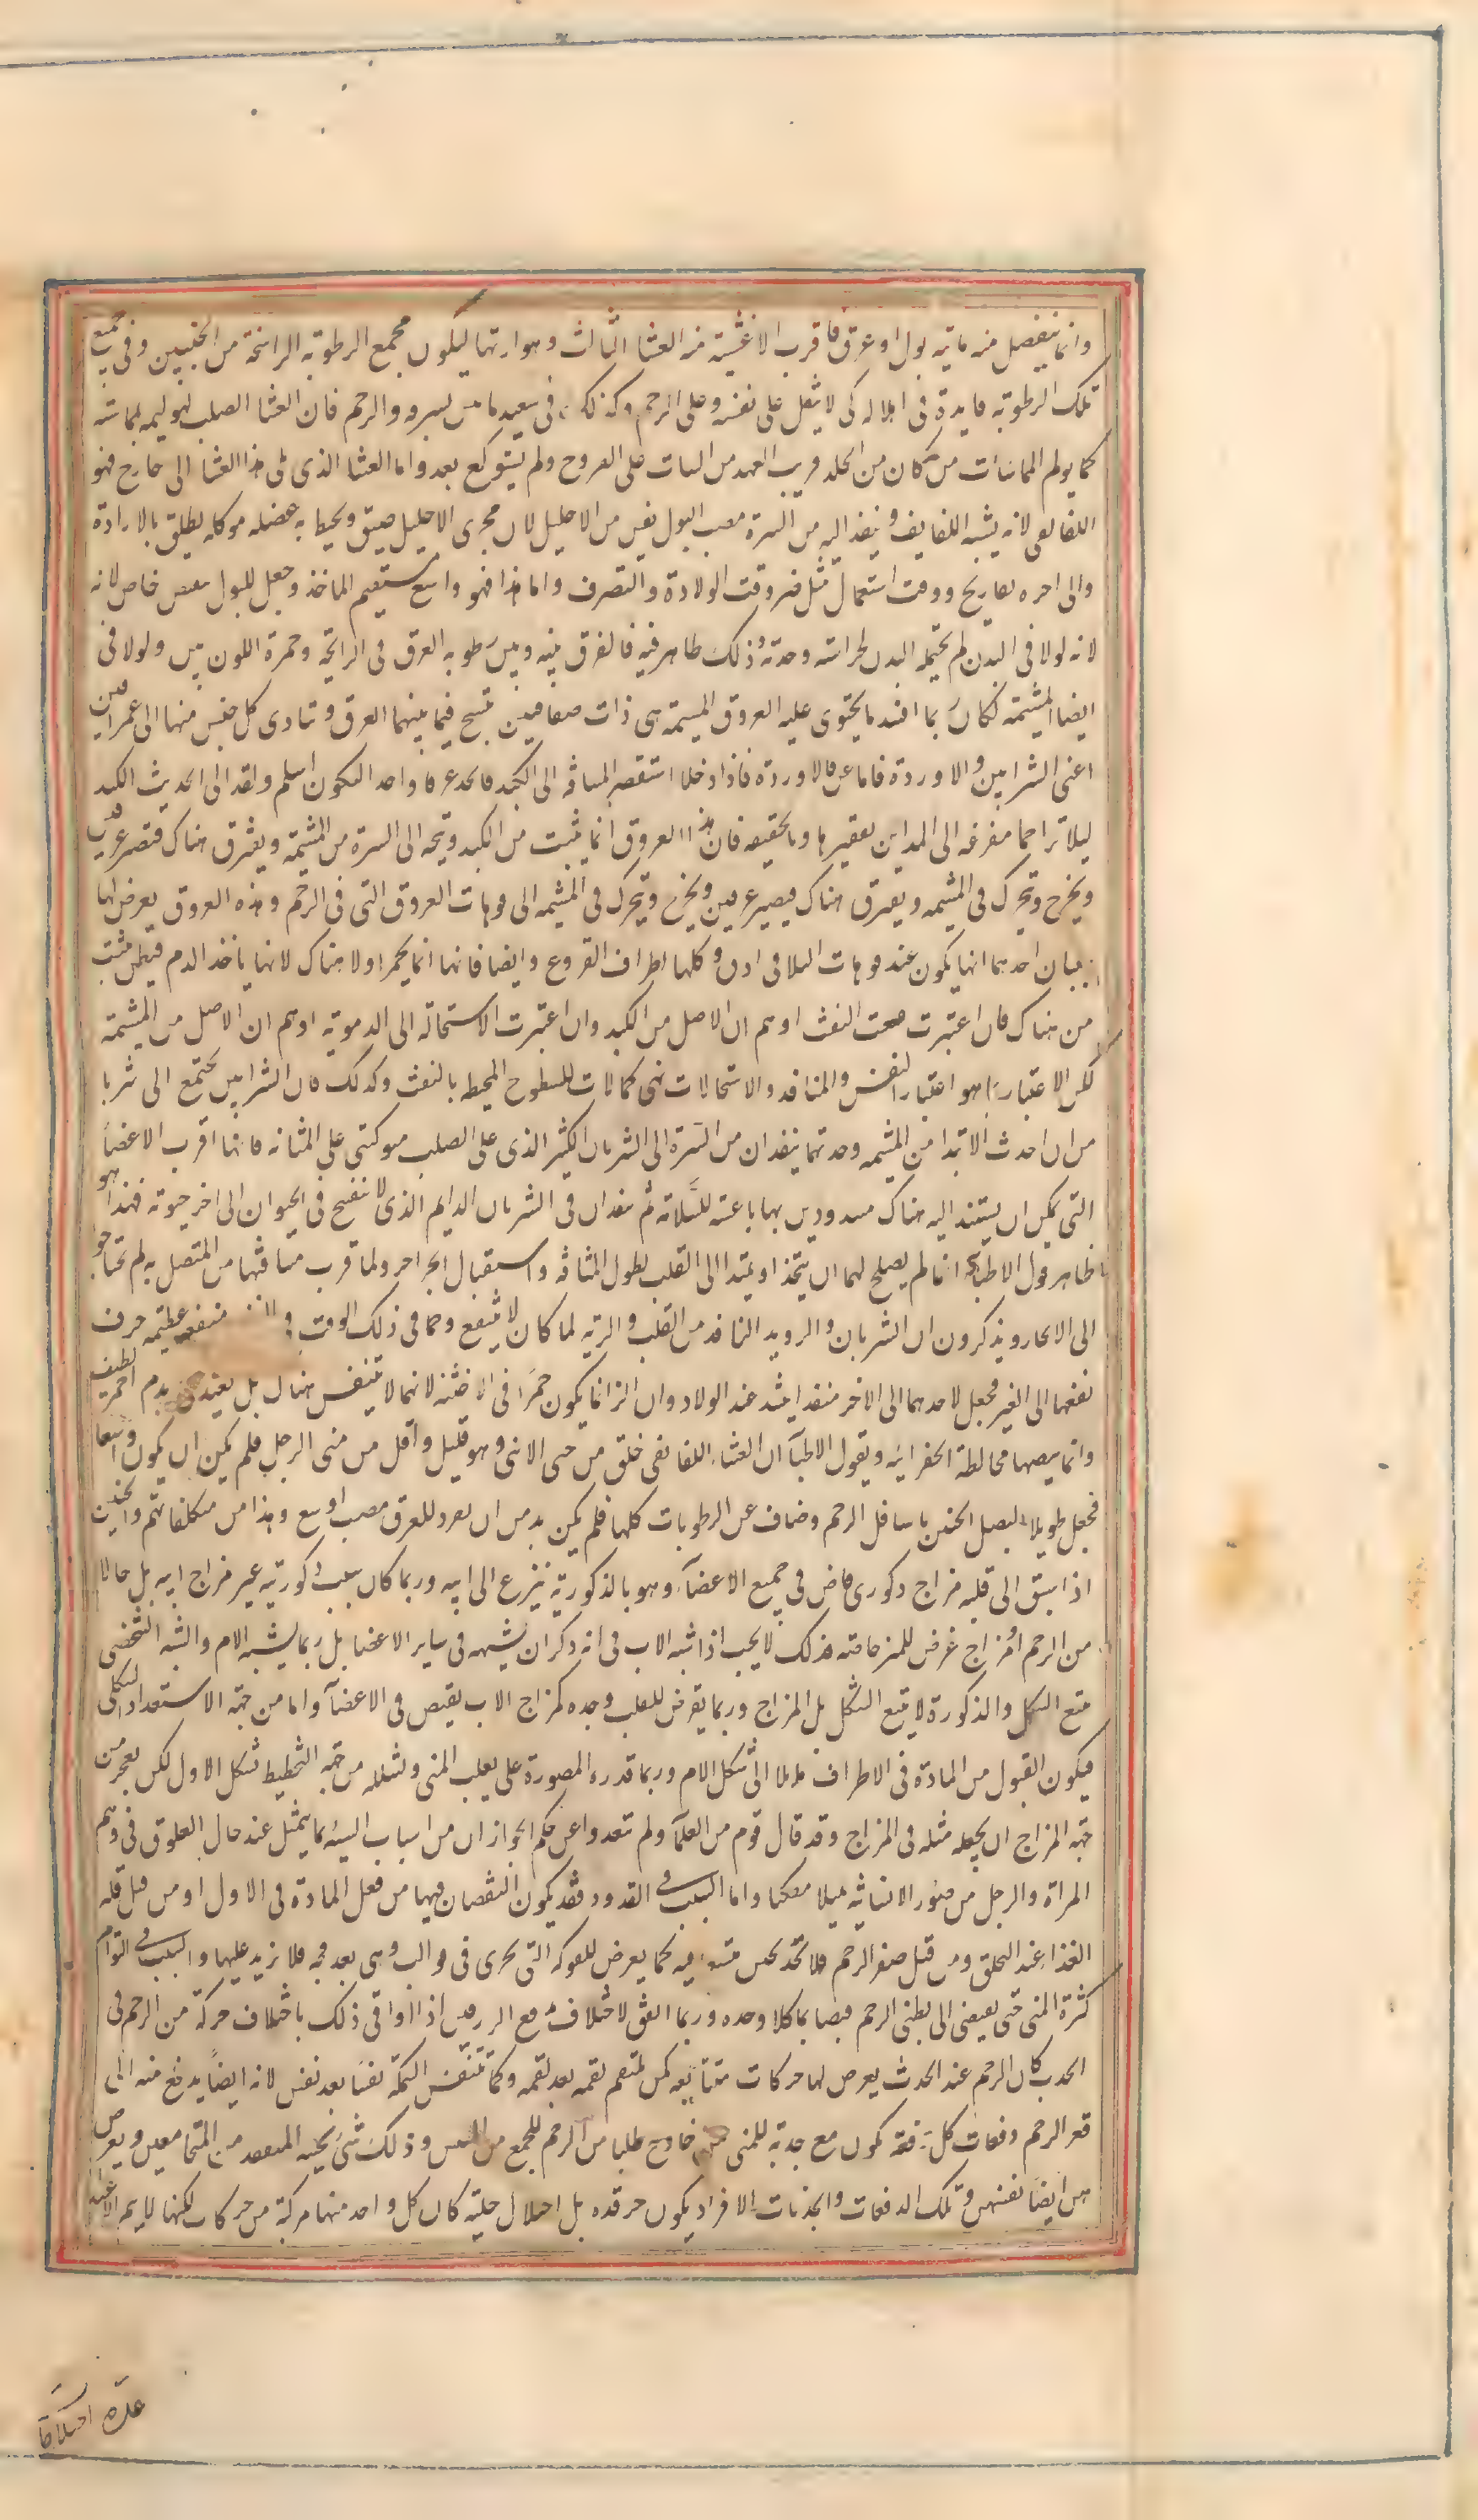 وانما ينفصل منه مائيه بول او عرق فاقرب الاغشية منه الغشا الثالث وهو ارقها ليكون مجمع الرطوبة الراشحة من الجنين وفى جمع
تلك الرطوبة فايدة فى اقلاله كى لا يثقل على نفسه وعلى الرحم وكذلك فى تبعيد ما بين بشرته والرحم فان الغشا الصلب يولمه بمماسته
كما يولم المماسات من كان من الجلد قريب العهد من النبات على القروح ولم يستوكع بعد واما الغشا الذى يلى هذا الغشا الى خارج فهو
اللفايفى لانه يشبه اللفايف وينفذ اليه من السرة مصب البول ليس من الاحليل لان مجرى الاحليل ضيق ويحيط به عضله موكله يطلق بالارادة
والى اخره تعاريج ووقت استعمال مثله هو وقت الولادة والتصرف واما هذا فهو واسع مستقيم الماخذ وجعل للبول مفيض خاص لانه
لانه لولا فى البدن لم يحتمله البدن لحرافته وحدته وذلك ظاهر فيه فالفرق بينه وبين رطوبه العرق فى الرائحة وحمرة اللون بين ولولا فى
ايضا المشيمة لكان ربما افسد ما يحتوى عليه العروق المشيمة هى ذات صفاقين تنسج فيما بينهما العرق وتتادى كل جنس منها الى عمرقين
اعنى الشرايين والاوردة فاما عرقا الاوردة فاذا دخلا استقصر المسافه الى الكبد فاتحد عرقا واحدا ليكون اسلم ونفذ الى تحديب الكبد
ليلا يزاحما مفرغه المرارة من تقعيرها وبالحقيقه فان هذه العروق انما تنبت من الكبد وتتجه الى السرة من المشيمة ويفترق هناك فتصير عرقين
ويخرج ويتحرك فى المشيمه ويفترق هناك فيصير عرقين ويخرج ويتحرك فى المشيمه الى فوهات العروق التى فى الرحم وهذه العروق يعرض لها
شيئان احدهما انها يكون عند فوهات التلاقى ادق وكلها اطراف الفروع وايضا فانها انما يحمر اولا هناك لانها ياخذ الدم فيظن منبت
من هناك فان اعتبرت سعت الثقب اوهم ان الاصل من الكبد وان اعتبرت الاستحالة الى الدموية اوهم ان الاصل من المشيمة
لكن الاعتبار هو اعتبار الثقب والمنافذ والاستحالات هى كمالات للسطوح المحيطه بالثقب وكذلك فان الشرايين يجتمع الى شريا
من ان احدث الابتدا من المشيمه وجدتها ينفذان من السرة الى الشريان الكبير الذى على الصلب متوكئين على المثانه فانها اقرب الاعضا
التى يمكن ان يستند اليه هناك مشدودين بها باغشيه للسلامة ثم ينفذان فى الشريان الدايم الذى لا ينفسخ فى الحيوان الى اخر حيوته فهذا هو
ظاهر قول الاطبا انما لم يصلح لهما ان يتخذ او يمتد الى القلب لطول المسافه واستقبال الحواجز ولما قرب مسافتهما من المتصل به لم يحتاجوا
الى الاتحاد ويذكرون ان الشريان والوريد النافذين من القلب والريه لما كان لا ينفع بهما فى ذلك الوقت فى منفعه عظيمه صرف
نفعهما الى الغير فجعل لاحدهما الى الاخر منفذا ينسد عند الولاد وان الريه انما يكون حمراء فى الاجنة لانها لا تتنفس هناك بل يغتذى بدم احمر لطيف
وانما يبيضها مخالطة الهوائيه ويقول الاطبآ ان الغشاء اللفايفى خلق من منى الانثى وهو قليل واقل من منى الرجل فلم يمكن ان يكون واسعا
فجعل طويلا ليصل الجنين باسافل الرحم وضاق عن الرطوبات كلها فلم يكن بد من ان يفرد للعرق مصب اوسع وهذا من متكلفاتهم والجنين
اذا سبق الى قلبه مزاج ذكورى فاض فى جميع الاعضآء وهو بالذكورية ينزع الى ابيه وربما كان سبب ذكوريته غير مزاج ابيه بل حالا
من الرحم او مزاج عرض للمنى خاصه فكذلك لا يجب اذا شبه الاب فى انه ذكر ان يشبهه فى ساير الاعضا بل ربما يشبه الام والشبه الشخصى
يتبع الشكل والذكورة لا يتبع الشكل بل المزاج وربما يعرض للقلب وحده كمزاج الاب يفيض فى الاعضآ واما من جهة الاستعداد الشكلى
فيكون القبول من المادة فى الاطراف مايلا الى شكل الام وربما قدرت المصورة على يغلب المنى وتشكله من جهة التخطيط شكل الاول لكن يعجز من
جهة المزاج ان يجعله مثله فى المزاج وقد قال قوم من العلمآ ولم يتعدوا عن حكم الجواز ان من اسباب الشبه ما يتمثل عند حال العلوق فى وهم
المراة والرجل من صور الانسانيه تمثلا متمكنا واما السبب فى القدود فقد يكون النقصان فيها من قبل المادة فى الاول او من قبل قله
الغذا عند التخلق ومن قبل صغر الرحم فلا يجد الجنين متسعا فيه كما يعرض للفواكه التى تجرى فى قوالب وهى بعد فجه فلا يزيد عليها والسبب فى التوام
كثرة المنى حتى يفيض الى بطنى الرحم فيضا يملا كلا وحده وربما اتفق لاختلاف دفع الزرقين اذا وافى ذلك باختلاف حركة من الرحم فى
الجذب كان الرحم عند الجذب يعرض لها حركات متتابعه كمن يلتقم لقمه بعد لقمه وكما تتنفس السمكة نفسا بعد نفس لانه ايضا يدفع منه الى
قعر الرحم دفعات كل دفعة يكون مع جذبة للمنى من خارج طلبا من الرحم للجمع من المنيين وذلك شئ يحسه المتفقد من المتجامعين ويعرض
هن ايضا نفسهن وتلك الدفعات والجذبات الافراد يكون صرفه بل اختلاجية كان كل واحد منها مركبة من حركات لكنها لا يتم الا عند
عدة اختلاجات